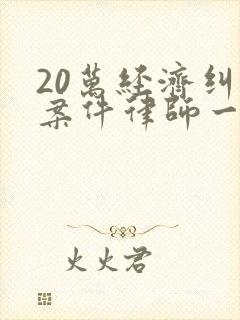 20萬經濟糾
案件律師一
火火君